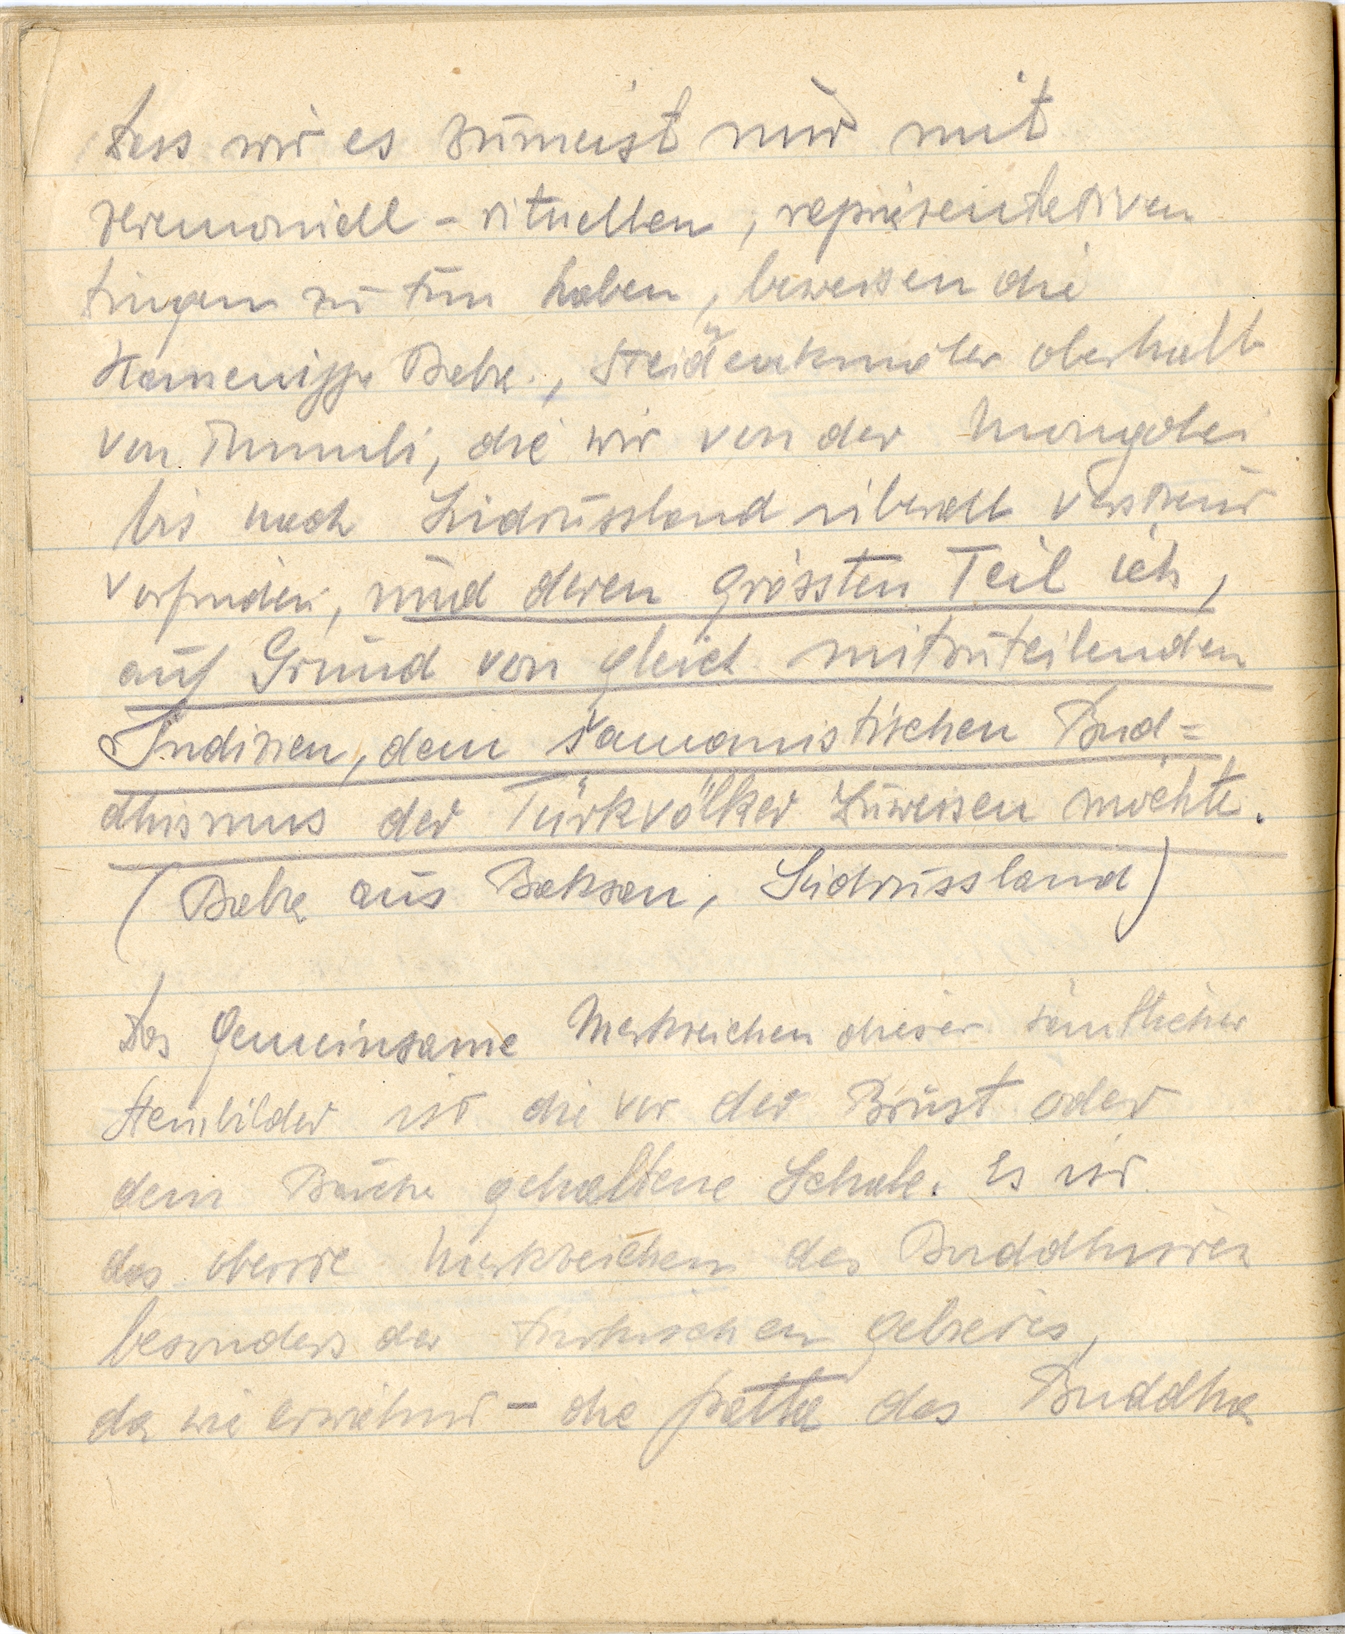 dass wir es zumeist nur mit
zeremoniell - rituellen, repräsentativen
Dingen zu tun haben, beweisen die
Kamenyje Babe, Steindenkmäler oberhalb
von Tumuli, die wir von der Mongolei
bis nach Südrussland überall verstreut
vorfinden, und deren grössten Teil ich,
auf Grund von gleich mitzuteilenden
Indizien, dem šamanistischen Bud=
dhismus der Türkvölker zuweisen möchte.
(Baba aus Baksan, Südrussland)
Das gemeinsame Merkzeichen dieser sämtlicher
Steinbilder ist die vor der Brust oder
dem Bauche gehaltene Schale. Es ist
das oberste Merkzeichen des Buddhisten
besonders der türkischen Gebietes,
da wie erwähnt - die patta des Buddha